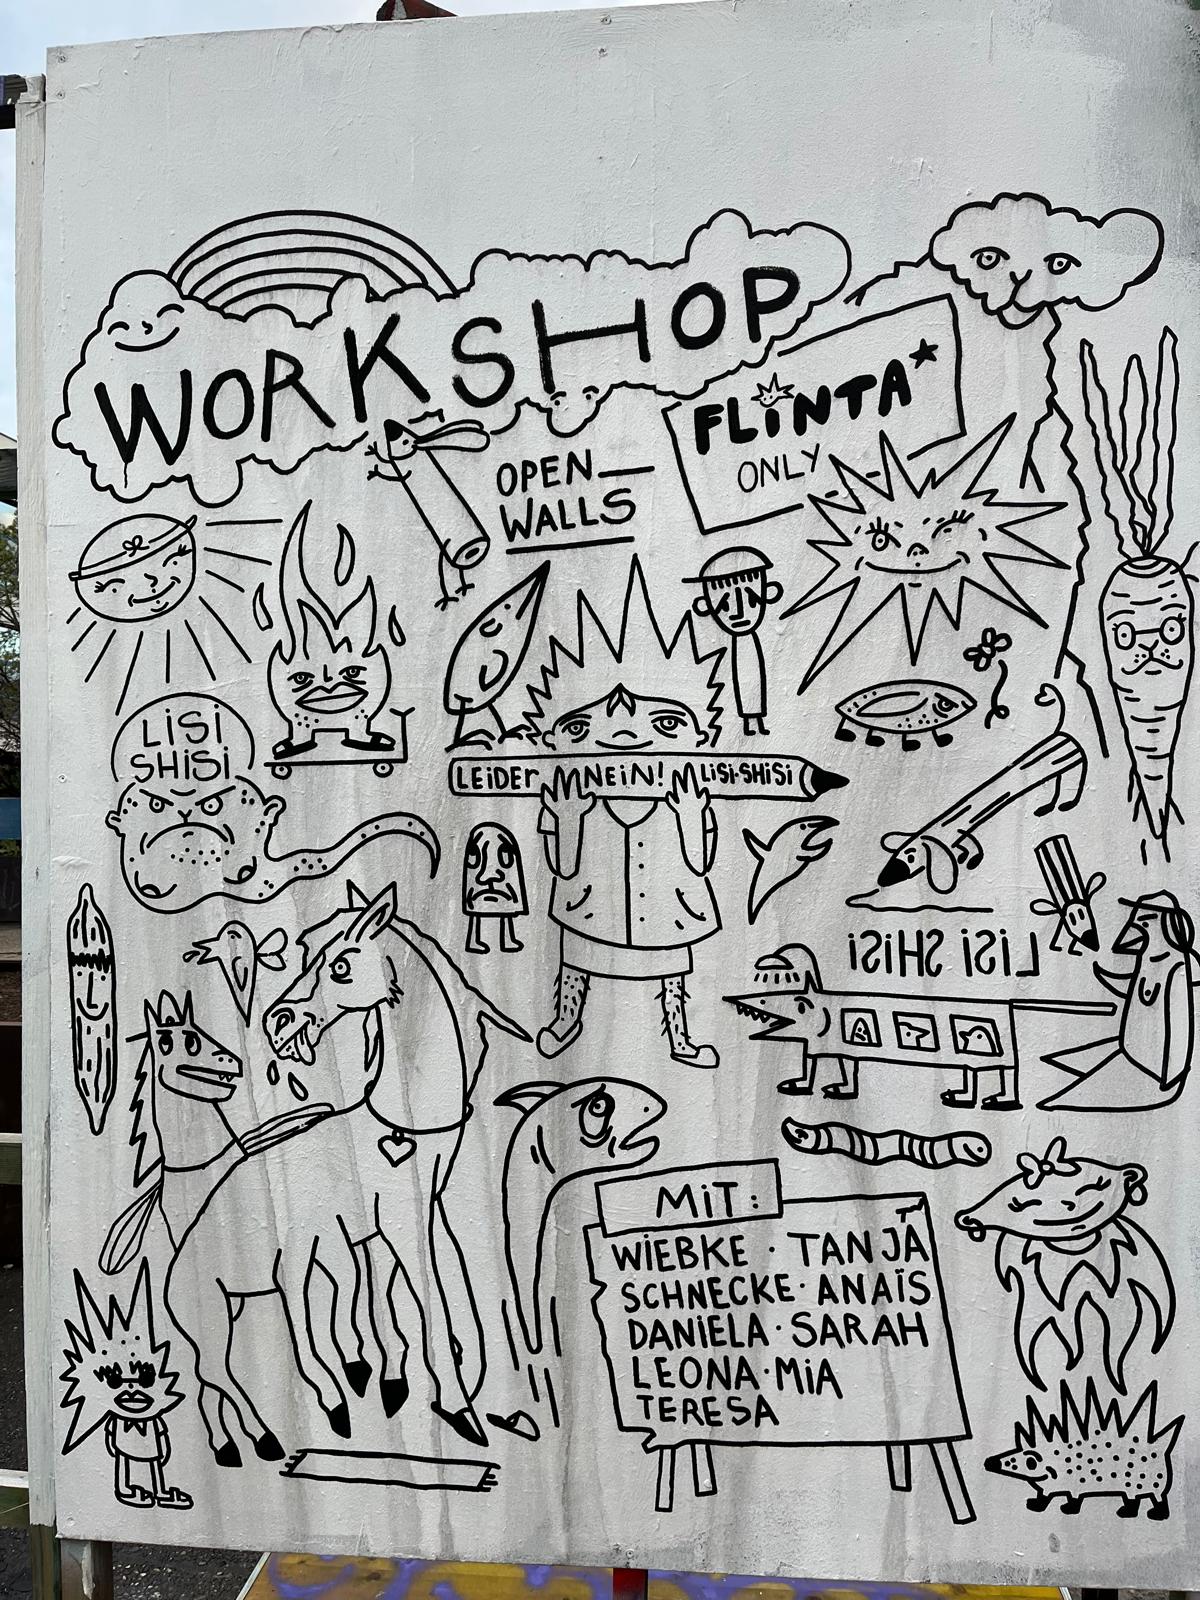 WORKSHOP
FLiNTA*
ONLY
OPEN
WALLS
LiSi
SHiSi
LEiDER NEiN! LiSi·SHiSi
LiSi SHiSi
MiT:
WiEBKE · TANJA
SCHNECKE · ANAÏS
DANiELA · SARAH
LEONA · MiA
TERESA